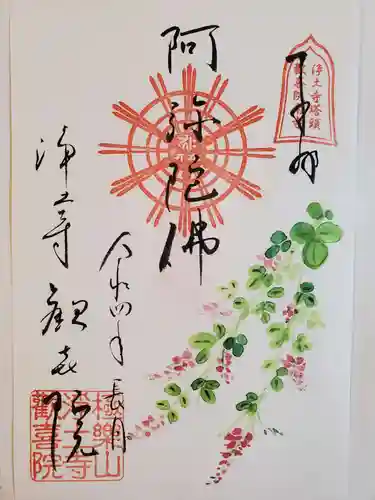 浄土寺塔頭
歓喜院
奉拝
阿弥陀佛
令和四年長月
浄土寺 歓喜院
極樂山
浄土寺
歡喜院